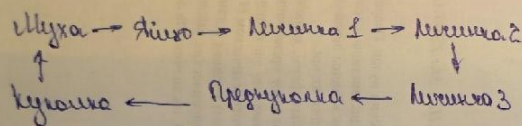 Муха → Яйцо → Личинка 1 → Личинка 2
Куколка ← Предкуколка ← Личинка 3